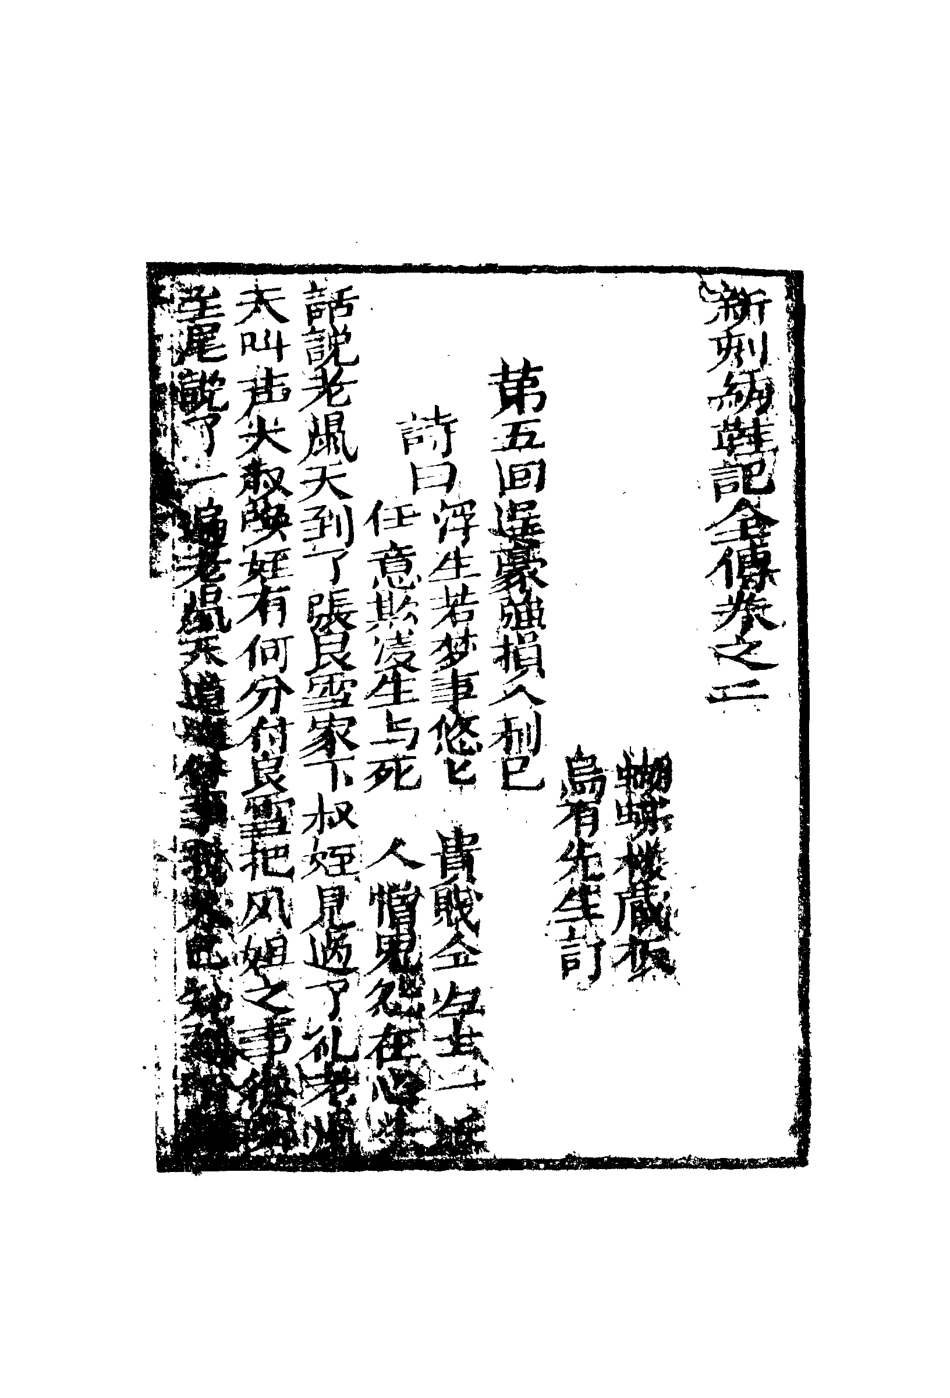 新刻綉鞋記全傳卷之二
蝴蝶樓藏板
烏有先生訂
第五回逞豪強損人利己
詩曰 浮生若梦事悠匕 貴賤仝
任意欺凌生与死 人憎鬼怨在心
話說老鼡天到了張良雪家下叔姪見過了礼老鼡
天叫声大叔喚姪有何分付良雪把凤姐之事從頭
至尾說了一遍老鼡天道